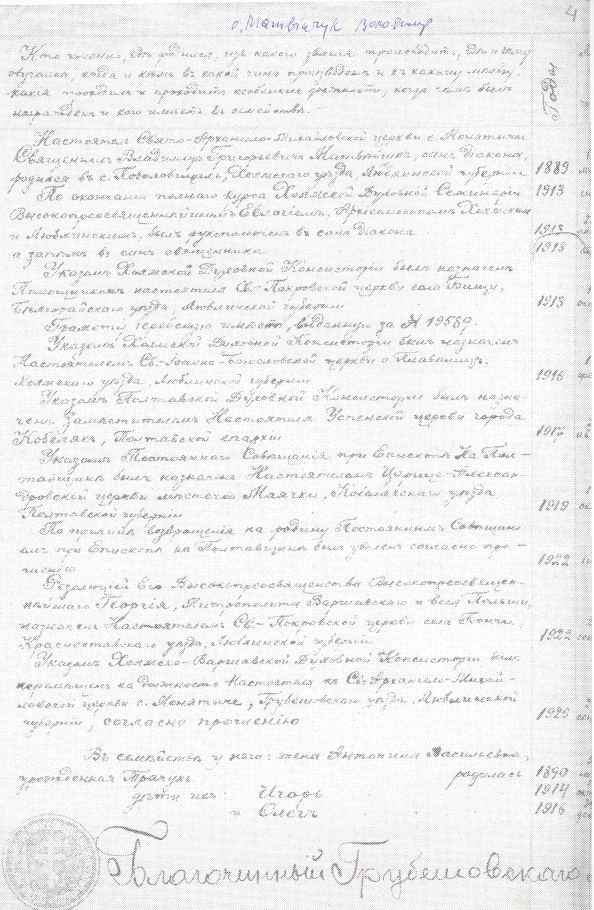 о. Матвійчук Володимир
4
Годы
Кто именно, где родился, изъ какого званія происходитъ, где и чему
обучался, когда и кѣмъ въ какой чинъ произведенъ и къ какому мѣсту,
какія проходилъ и проходитъ особенныя должности, когда чѣмъ былъ
награжденъ и кого имѣетъ въ семействѣ.
Настоятель Свято-Архангело-Михайловской церкви с. Монятичи
Священникъ Владимиръ Григорьевичъ Матвѣйчукъ, сынъ діакона,
родился въ с. Холмскаго уѣзда, Люблинской губерніи 1889
По окончаніи полнаго курса Холмской Духовной Семинаріи 1913
Высокопреосвященнѣйшимъ Евлогіемъ, Архіепископомъ Холмскимъ
и Люблинскимъ, былъ рукоположенъ въ санъ діакона 1913
а затѣмъ въ санъ священника 1913
Указомъ Холмской Духовной Консисторіи былъ назначенъ
Помощникомъ настоятеля Св.-Покровской церкви села
Бѣлгорайскаго уѣзда, Люблинской губерніи 1913
Грамоту іерейскую имѣетъ, выданную за № 19589.
Указомъ Холмской Духовной Консисторіи былъ назначенъ
Настоятелемъ Св.-Іоанно-Богословской церкви
Холмскаго уѣзда, Люблинской губерніи 1916
Указомъ Полтавской Духовной Консисторіи былъ назна-
ченъ Замѣстителемъ Настоятеля Успенской церкви города
Кобелякъ, Полтавской епархіи 1917
Указомъ Постояннаго Совѣщанія при Епископѣ На Пол-
тавщинѣ былъ назначенъ Настоятелемъ Алексан-
дровской церкви мѣстечка Маячки, Кобелякскаго уѣзда
Полтавской губерніи 1919
По причинѣ возвращенія на родину Постояннымъ Совѣщані-
емъ при Епископѣ на Полтавщинѣ былъ уволенъ согласно про-
шенію 1922
Резолюціей Его Высокопреосвященства Высокопреосвящен-
нѣйшаго Георгія, Митрополита Варшавскаго и всея Польши
назначенъ Настоятелемъ Св.-Покровской церкви села Бончи,
Красноставскаго уѣзда, Люблинской губерніи 1922
Указомъ Холмско-Варшавской Духовной Консисторіи былъ
перемѣщенъ на должность Настоятеля къ Св.-Архангело-Михай-
ловской церкви с. Монятичи, Грубешовскаго уѣзда, Люблинской
губерніи, согласно прошенію 1923
Въ семействѣ у него: жена Антонина Васильевна,
урожденная родилась 1890
дѣти ихъ: Игорь 1914
и Олегъ 1916
Благочинный Грубешовскаго